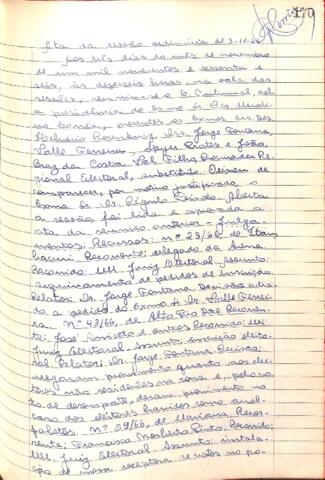 170
Ata da sessão ordinária de 3-11-66
Aos três dias do mês de novembro
de um mil novecentos e sessenta e
seis, às dezesseis horas, na sala das
sessões, reuniu-se o E. Tribunal, sob
a presidência do Exmo. Sr. Des.
presentes os Exmos. Srs. Des.
Drs. Jorge Fontana,
Valle Ferreira, Prates e João
Braz da Costa Val Filho, Procurador Re-
gional Eleitoral, substituto. Deixou de
comparecer, por motivo justificado, o
Exmo. Sr. Dr. Aberta
a sessão, foi lida e aprovada a
ata da reunião anterior. Julga-
mentos: Recursos: nº 23/66, de Itam-
bacuri. Recorrente: delegado da Arena.
Recorrido: MM. Juiz Eleitoral. Assunto:
arquivamento de pedidos de inscrição.
Relator: Dr. Jorge Fontana. Decisão: adia-
do a pedido do Exmo. Sr. Dr. Valle Ferrei-
ra. Nº 43/66, de Alto Rio Doce. Recorren-
te: José e outros. Recorrido: MM.
Juiz Eleitoral. Assunto: inscrição eleito-
ral. Relator: Dr. Jorge Fontana. Decisão:
negaram provimento quanto aos elei-
tores não residentes na zona e, pelo vo-
to de desempate, deram provimento no
caso dos eleitores havidos como anal-
fabetos. Nº 59/66, de Mariana. Recor-
rente: Francisco Pinto. Recorrido:
MM. Juiz Eleitoral. Assunto: instala-
ção de mesa receptora de votos no po-